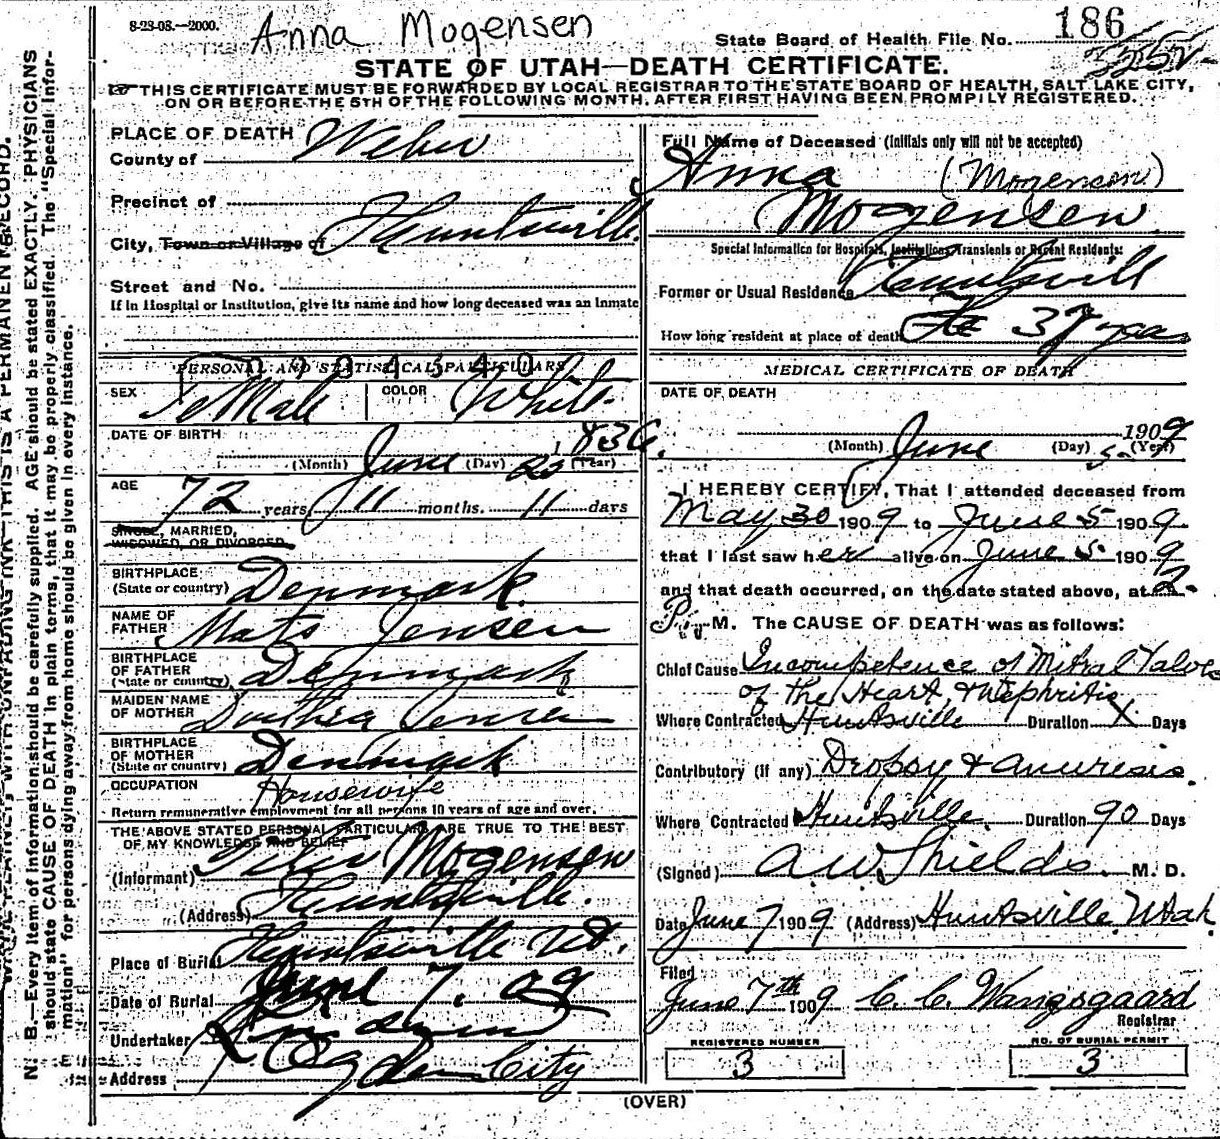 8-28-08.—2000.
Anna Mogensen
State Board of Health File No. 186
STATE OF UTAH—DEATH CERTIFICATE.
THIS CERTIFICATE MUST BE FORWARDED BY LOCAL REGISTRAR TO THE STATE BOARD OF HEALTH, SALT LAKE CITY,
ON OR BEFORE THE 5TH OF THE FOLLOWING MONTH, AFTER FIRST HAVING BEEN PROMPTLY REGISTERED.
PLACE OF DEATH
County of Weber
Precinct of
City, Town or Village of Huntsville
Street and No.
If in Hospital or Institution, give its name and how long deceased was an inmate
PERSONAL AND STATISTICAL PARTICULARS
SEX FeMale COLOR White
DATE OF BIRTH
(Month) June (Day) 25 1836. (Year)
AGE
72 years 11 months. 11 days
SINGLE, MARRIED,
WIDOWED, OR DIVORCED
BIRTHPLACE
(State or country) Denmark
NAME OF
FATHER Mats Jensen
BIRTHPLACE
OF FATHER
(State or country) Denmark
MAIDEN NAME
OF MOTHER Jensen
BIRTHPLACE
OF MOTHER
(State or country) Denmark
OCCUPATION Housewife
Return remunerative employment for all persons 10 years of age and over.
THE ABOVE STATED PERSONAL PARTICULARS ARE TRUE TO THE BEST
OF MY KNOWLEDGE AND BELIEF
(Informant) Peter Mogensen
(Address) Huntsville.
Place of Burial Huntsville Ut.
Date of Burial June 7. 09
Undertaker
Address Ogden City
Full Name of Deceased (Initials only will not be accepted)
Anna (Mogenson)
Mogensen
Special Information for Hospitals, Institutions, Transients or Recent Residents:
Former or Usual Residence Huntsvill
How long resident at place of death 37 years
MEDICAL CERTIFICATE OF DEATH
DATE OF DEATH
1909
(Month) June (Day) 5 (Year)
I HEREBY CERTIFY, That I attended deceased from
May 30 1909 to June 5 1909.
that I last saw her alive on June 5 1909
and that death occurred, on the date stated above, at 2
P. M. The CAUSE OF DEATH was as follows:
Chief Cause Incompetence of Mitral Valves
of the Heart, & Nephritis
Where Contracted Huntsville Duration X Days
Contributory (if any) Dropsy & anuresis.
Where Contracted Huntsville. Duration 90 Days
(Signed) A.W. Shields. M. D.
Date June 7 1909 (Address) Huntsville. Utah.
Filed
June 7th 1909 C. C. Wangsgaard
Registrar
REGISTERED NUMBER
3
NO. OF BURIAL PERMIT
3
(OVER)
THIS IS A PERMANENT RECORD.
N. B.—Every item of information should be carefully supplied. AGE should be stated EXACTLY. PHYSICIANS
should state CAUSE OF DEATH in plain terms, that it may be properly classified. The "Special Infor-
mation" for persons dying away from home should be given in every instance.